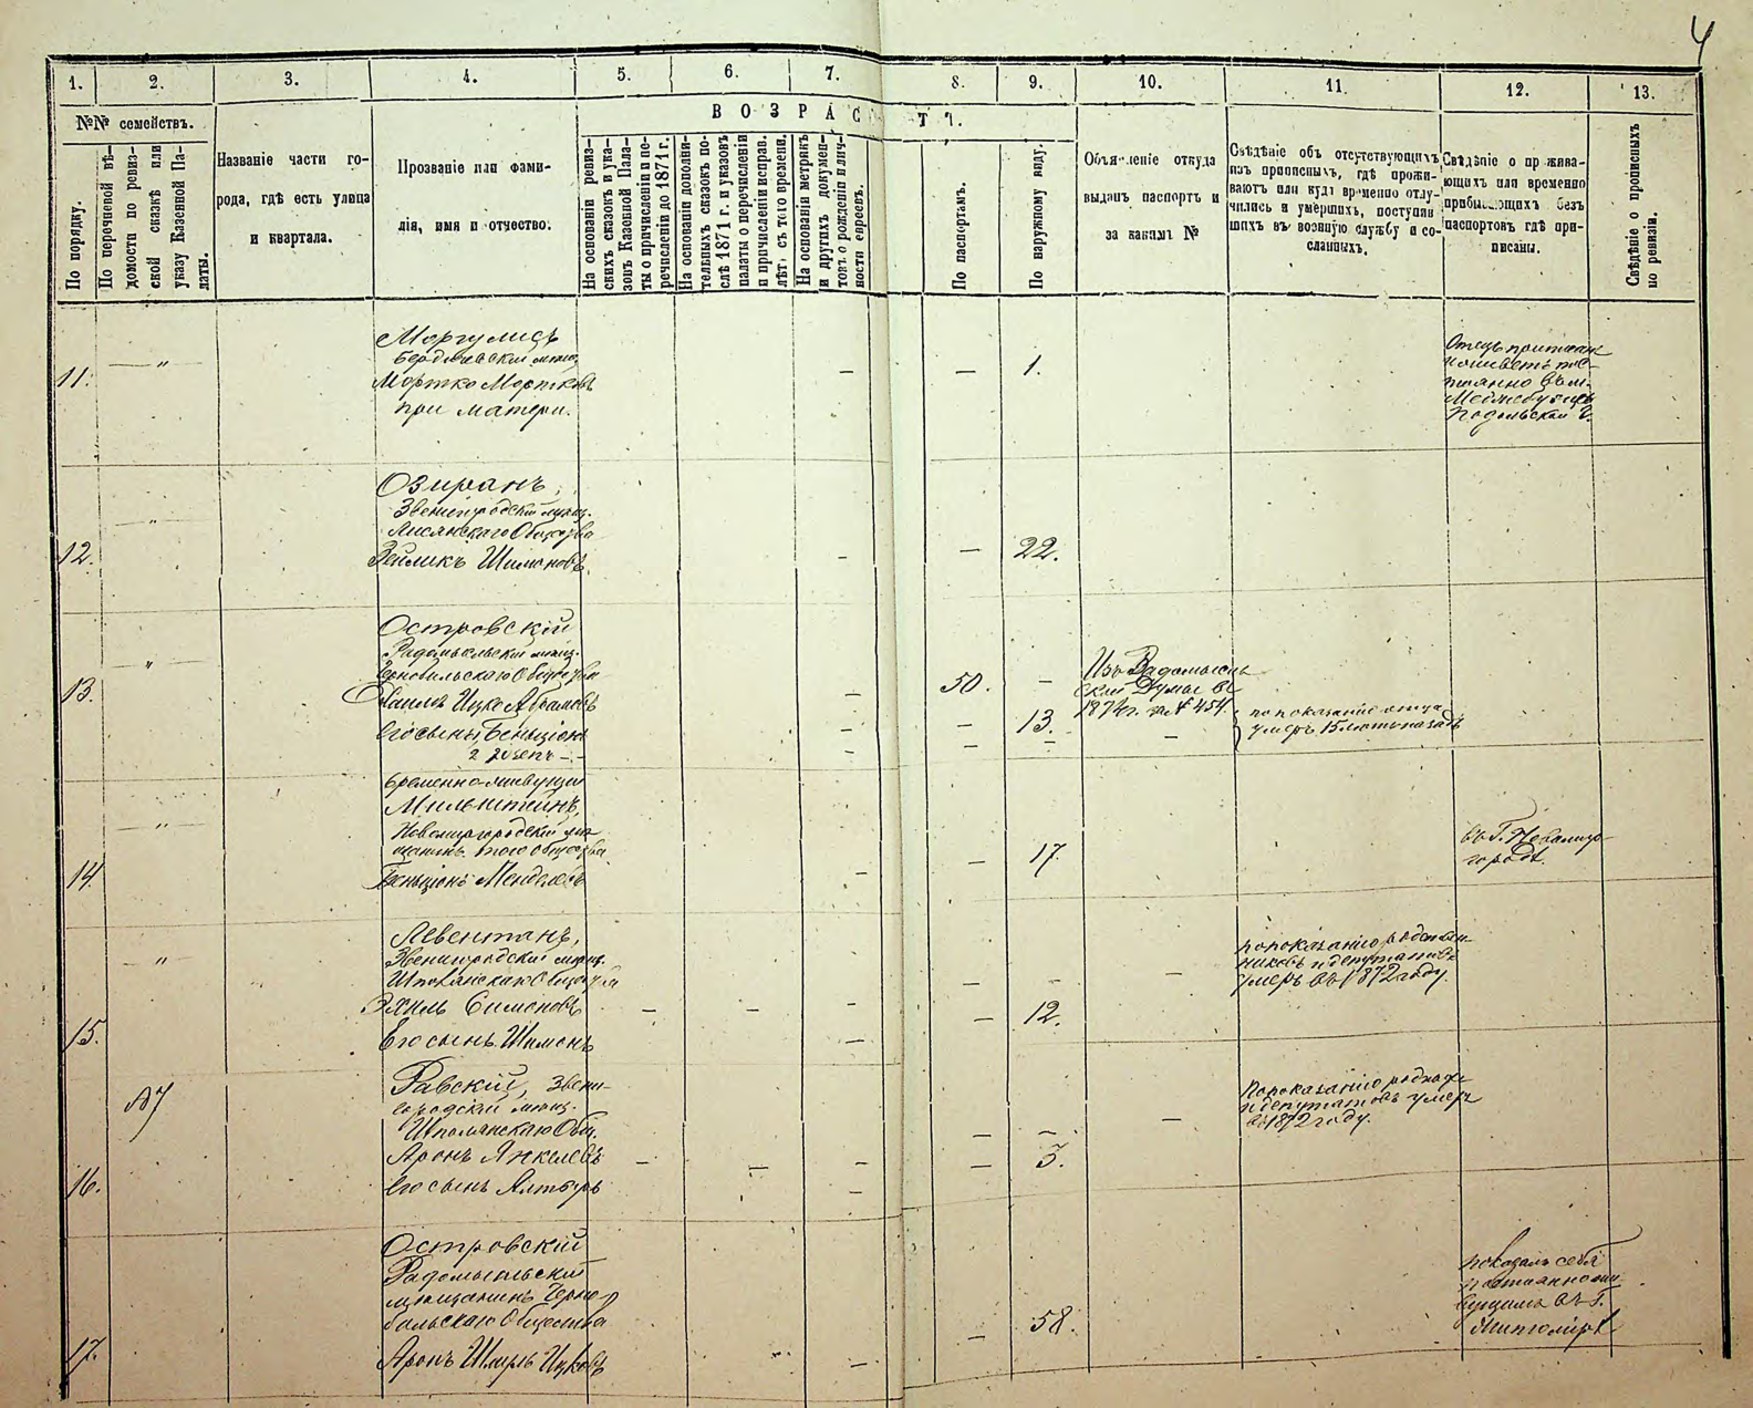 4
1. 2. 3. 4. 5. 6. 7. 8. 9. 10. 11. 12. 13.
№№ семействъ.
По порядку.
По перечневой вѣ-
домости по ревиз-
ской сказкѣ или
указу Казенной Па-
латы.
Названіе части го-
рода, гдѣ есть улица
и квартала.
Прозваніе или фами-
лія, имя и отчество.
ВОЗРАСТЪ.
На основаніи ревиз-
скихъ сказокъ и ука-
зовъ Казенной Пала-
ты о причисленіи и пе-
речисленіи до 1871 г.
На основаніи дополни-
тельныхъ сказокъ по-
слѣ 1871 г. и указовъ
палаты о перечисленіи
и причисленіи исправ.
лѣтъ съ того времени.
На основаніи метрикъ
и другихъ докумен-
товъ о рожденіи и лич-
ности евреевъ.
По паспортамъ.
По наружному виду.
Объявленіе откуда
выданъ паспортъ и
за какимъ №
Свѣдѣніе объ отсутствующихъ
изъ приписныхъ, гдѣ прожи-
ваютъ или куда временно отлу-
чились и умершихъ, поступив
шихъ въ военную службу и со-
сланныхъ.
Свѣдѣніе о прожива-
ющихъ или временно
прибывающихъ безъ
паспортовъ гдѣ при-
писаны.
Свѣдѣніе о прописныхъ
по ревизіи.
Моргулисъ
Бердичевскій мѣщ.
11. — " — Мортко Мортковъ — — 1.
при матери.
Отецъ
постоянно въ м.
Меджибужъ
Подольской г.
Озиранъ,
Звенигородскій мѣщ.
— " — Лисянскаго Общества
12. Зейликъ Шимоновъ — — 22.
Островскій
Радомысльскій мѣщ.
— " — Чернобильскаго Общества
13. Ицко Абрамовъ — 50. —
Изъ Радомысль
ской Думы въ
1874 г. за № 454.
его сыны Беньціонъ — — 13. —
по показанію отца
умеръ 15 лѣтъ назадъ
2 — —
временно-живущій
Мильштейнъ,
— " — Новомиргородскій мѣ-
щанинъ того общества
14. Беньціонъ Менделевъ — — 17.
въ Г. Новомир-
городѣ.
Левентанъ,
— " — Звенигородскій мѣщ.
Шполянскаго Общества
Эхиль Симоновъ — — — — — —
по показанію родствен-
никовъ и депутатовъ
умеръ въ 1872 году.
15. Его сынъ Шимонъ — — 12.
Равскій, Звени-
городскій мѣщ.
Шполянскаго Общ.
Аронъ Янкелевъ — — — — — —
По показанію
и депутатовъ умеръ
въ 1872 году.
16. его сынъ Алтеръ — — 3.
Островскій
Радомысльскій
мѣщанинъ Черно-
бильскаго Общества
17. Аронъ Шмуль Ицковъ — — 58.
показалъ себя
постоянно жи-
вущимъ въ г.
Житомірѣ